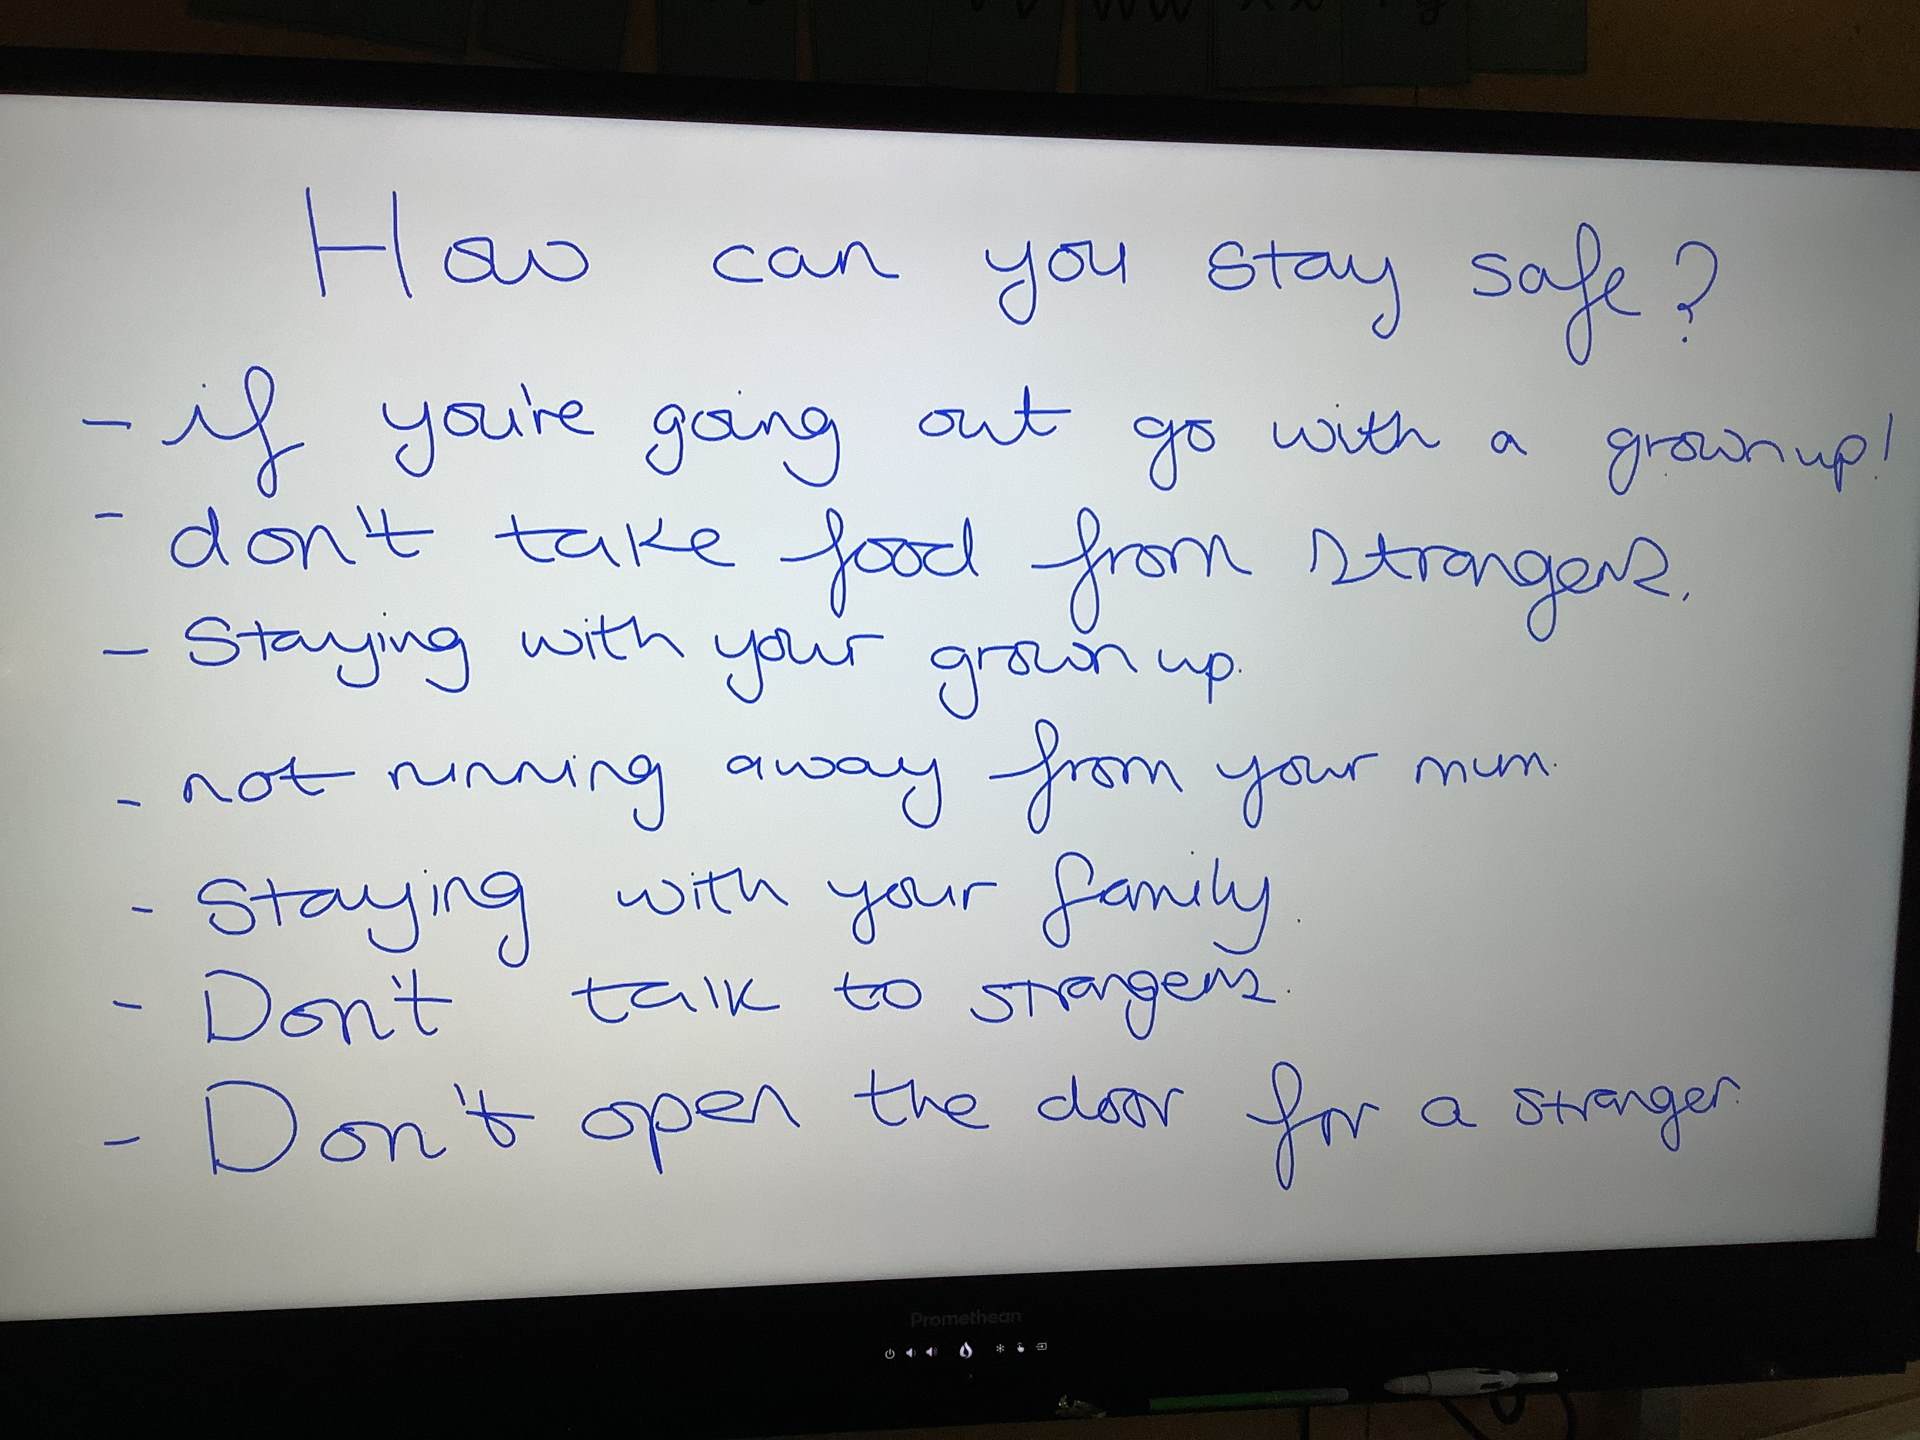 How can you stay safe?
- if you're going out go with a grown up!
- don't take food from strangers.
- Staying with your grown up.
- not running away from your mum.
- Staying with your family.
- Don't talk to strangers.
- Don't open the door for a stranger.
Promethean